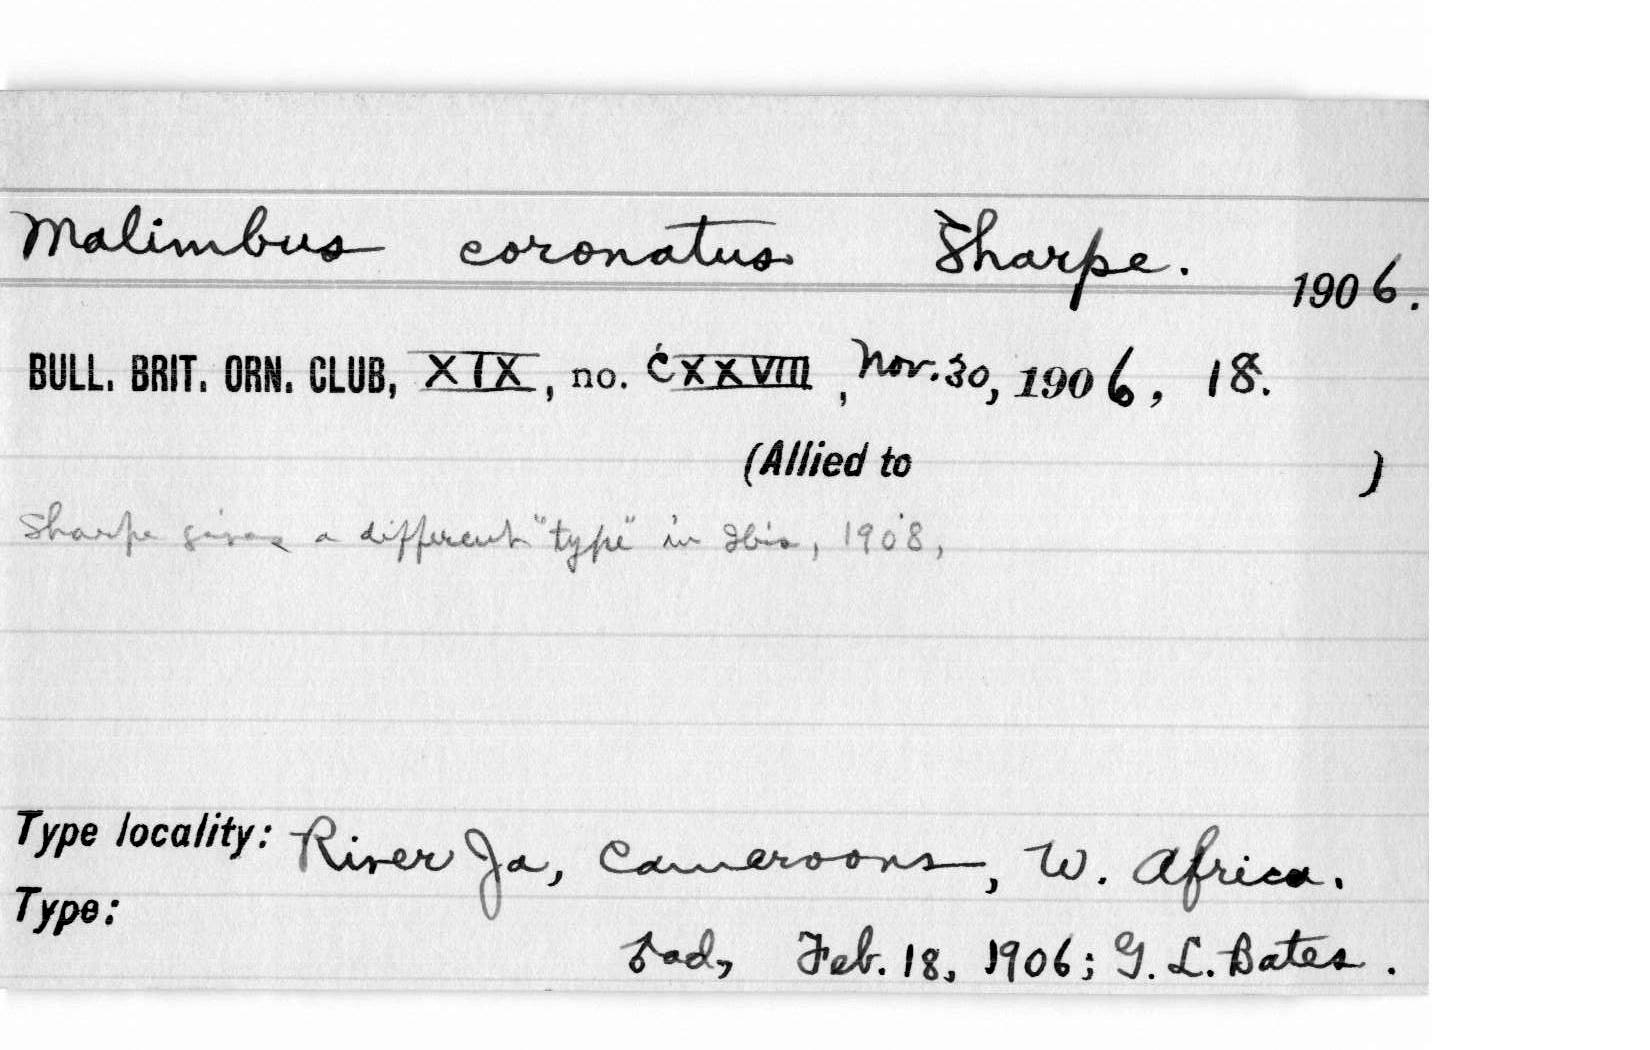 Malimbus coronatus Sharpe. 1906.
BULL. BRIT. ORN. CLUB, XIX, no. CXXVIII, Nov. 30, 1906, 18.
(Allied to )
Sharpe gives a different "type" in Ibis, 1908,
Type locality: River Ja, Cameroons, W. Africa.
Type:
♂ ad., Feb. 18, 1906; G. L. Bates.